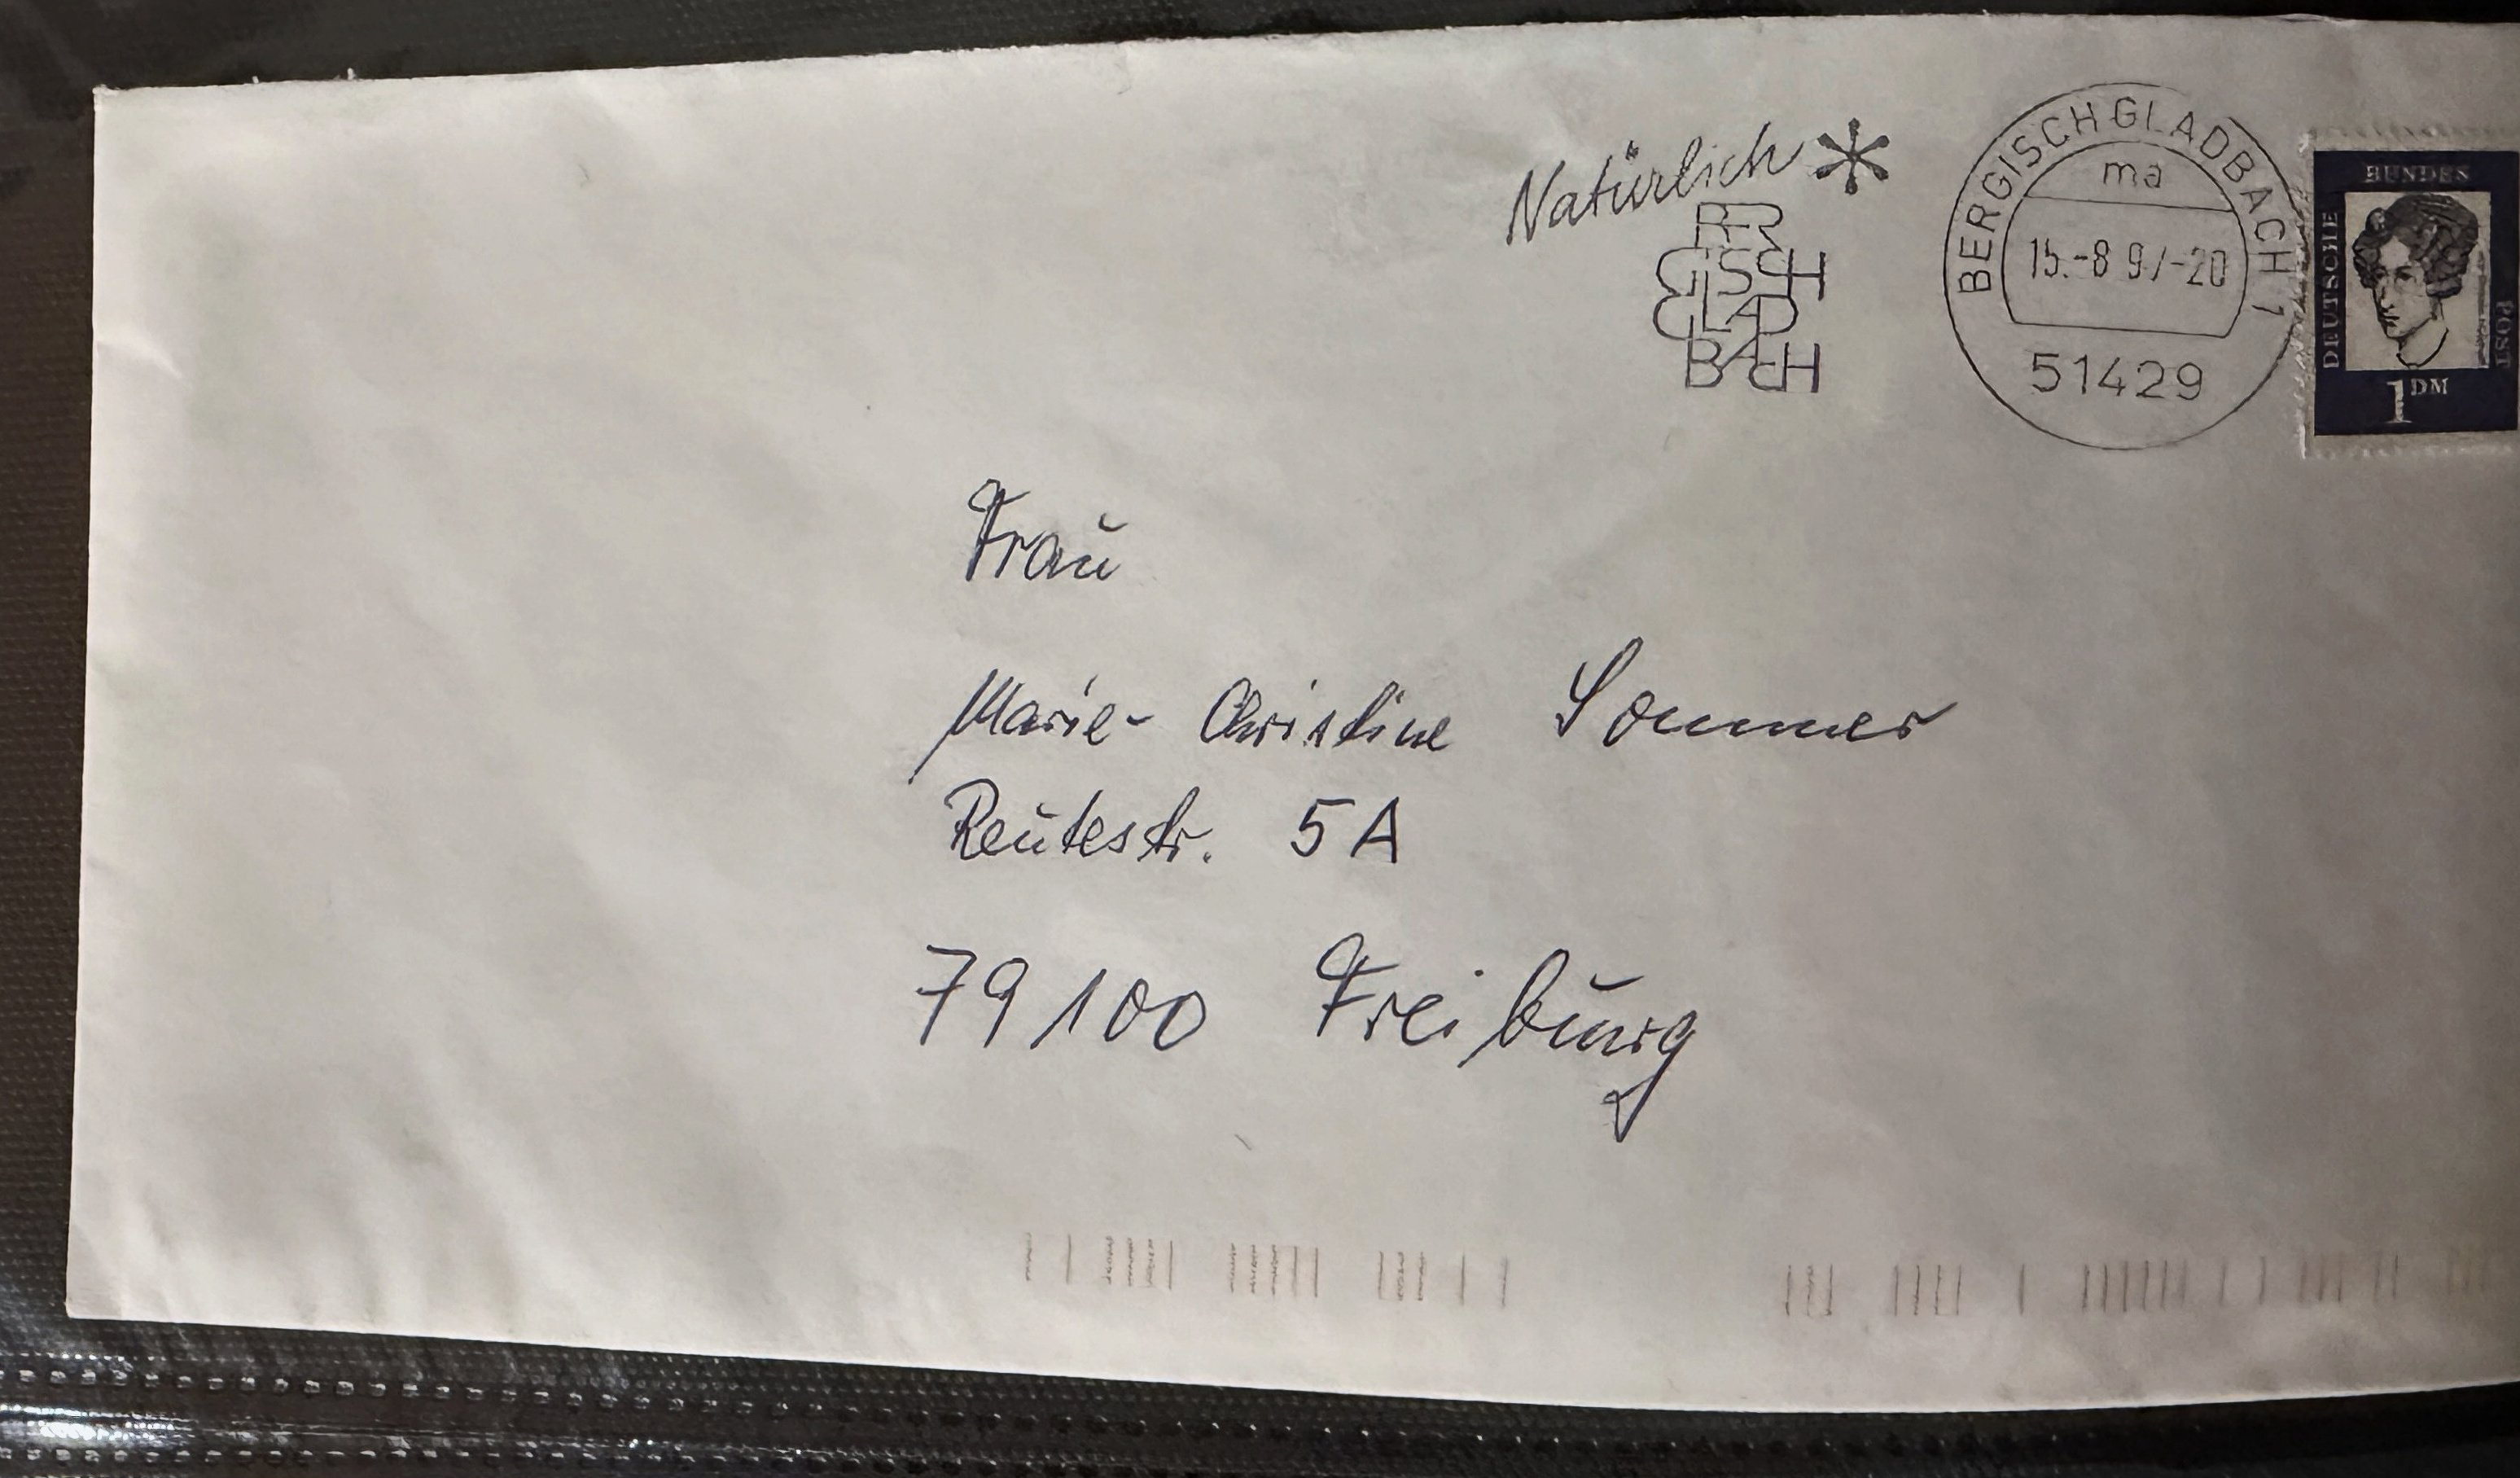 Natürlich *
BER
GISCH
GLAD
BACH
BERGISCH GLADBACH 1
ma
15.-8 97-20
51429
DEUTSCHE
BUNDES
POST
1 DM
Frau
Marie-Christine Sommer
Reutestr. 5A
79100 Freiburg